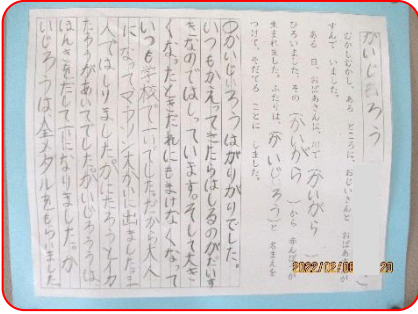 かいじろう
むかしむかし、ある ところに、おじいさんと おばあさんが
すんで いました。
ある 日、おばあさんは、川で かいがら
ひろいました。その かいがら から 赤んぼうが
生まれました。ふたりは、かいじろう と 名まえを
つけて、そだてる ことに しました。
①かいじろうはがりがりでした。
いつもかえってきたらはしるのがだいす
きなのではしっています。そして大き
くなったときだれにもまけなくなって
いつも学校で一いでした。だから大人
になってマラソン大かいに出ました。二
人ではしりました。かにたろうとイカ
たろうがあいてでした。かいじろうは
ほんきをだして一いになりました。か
いじろうは金メダルをもらいました。
2022/02/0
20